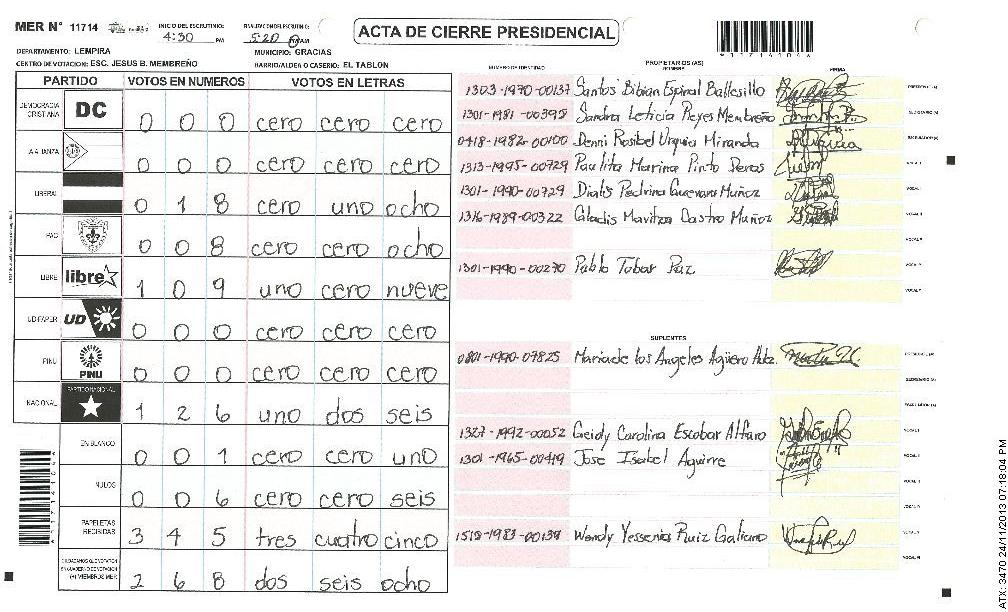 MER N° 11714 INICIO DEL ESCRUTINIO: 4:30 PM FINALIZACION ESCRUTINIO: 5:20 AM
ACTA DE CIERRE PRESIDENCIAL
DEPARTAMENTO: LEMPIRA MUNICIPIO: GRACIAS
CENTRO DE VOTACION: ESC. JESUS B. MEMBREÑO BARRIO/ALDEA O CASERIO: EL TABLON
PARTIDO VOTOS EN NUMEROS VOTOS EN LETRAS
DEMOCRACIA CRISTIANA DC 0 0 0 cero cero cero
LA ALIANZA 0 0 0 cero cero cero
LIBERAL 0 1 8 cero uno ocho
PAC 0 0 8 cero cero ocho
LIBRE libre 1 0 9 uno cero nueve
UD-FAPER UD 0 0 0 cero cero cero
PINU PINU 0 0 0 cero cero cero
NACIONAL PARTIDO NACIONAL 1 2 6 uno dos seis
EN BLANCO 0 0 1 cero cero uno
NULOS 0 0 6 cero cero seis
PAPELETAS RECIBIDAS 3 4 5 tres cuatro cinco
(+) MIEMBROS MER 2 6 8 dos seis ocho
NUMERO DE IDENTIDAD PROPIETARIOS (AS) NOMBRE FIRMA
1303-1970-00137 Santos Bibian Espinal Ballesillo
1301-1981-00395 Sandra Leticia Reyes Membreño
0418-1982-00100 Denni Rosibel Urquia Miranda
1313-1995-00729 Paulita Marina Pinto Deras
1301-1990-00729 Dialis Pedrina Guevara Muñoz
1316-1989-00322 Gladis Maritza Castro Muñoz
1301-1990-00270 Pablo Tobar Paz
SUPLENTES
0801-1990-07825 Maria de los Angeles Agüero
1327-1992-00052 Geidy Carolina Escobar Alfaro
1301-1965-00419 Jose Isabel Aguirre
1518-1983-00139 Wendy Yessenia Ruiz Galiano
ATX: 3470 24/11/2013 07:18:04 PM